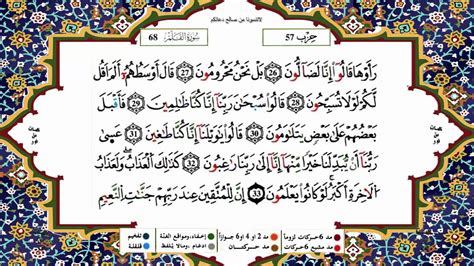 لاتنسونا من صالح دعائكم
سُورَةُ القَلَمِ 68
حِزْب 57
رَأَوْهَا قَالُوا إِنَّا لَضَالُّونَ 26 بَلْ نَحْنُ مَحْرُومُونَ 27 قَالَ أَوْسَطُهُمْ أَلَمْ أَقُل
لَّكُمْ لَوْلَا تُسَبِّحُونَ 28 قَالُوا سُبْحَٰنَ رَبِّنَا إِنَّا كُنَّا ظَٰلِمِينَ 29 فَأَقْبَلَ
بَعْضُهُمْ عَلَىٰ بَعْضٍ يَتَلَٰوَمُونَ 30 قَالُوا يَٰوَيْلَنَا إِنَّا كُنَّا طَٰغِينَ 31 عَسَىٰ
رَبُّنَا أَن يُبْدِلَنَا خَيْرًا مِّنْهَا إِنَّا إِلَىٰ رَبِّنَا رَٰغِبُونَ 32 كَذَٰلِكَ الْعَذَابُ وَلَعَذَابُ
الْآخِرَةِ أَكْبَرُ لَوْ كَانُوا يَعْلَمُونَ 33 إِنَّ لِلْمُتَّقِينَ عِندَ رَبِّهِمْ جَنَّٰتِ النَّعِيمِ
مد 6 حركات لزوماً مد 2 أو 4 أو 6 جوازاً إخفاء، ومواقع الغنة تفخيم
مد مشبع 6 حركات مد حركتان إدغام، ومالا يلفظ قلقلة